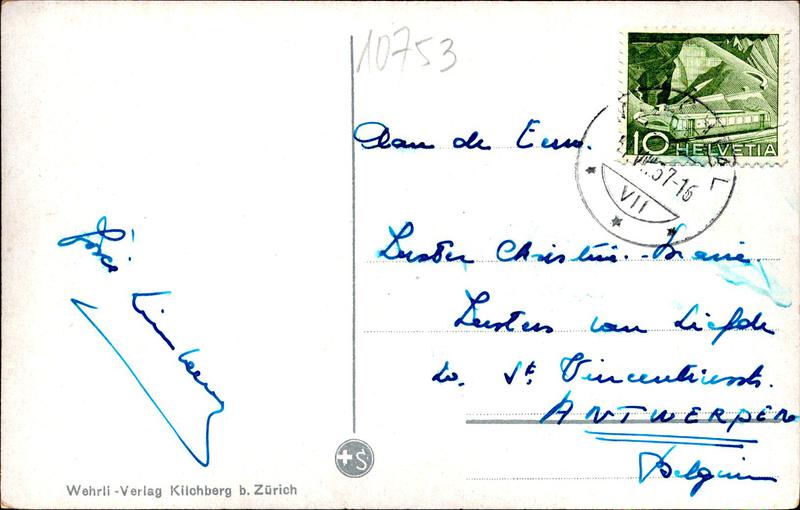 10753
10 HELVETIA
VII.57-16
VII
Aan de Eerw.
Zuster Christine-Marie
Zusters van Liefde
St. Vincentiusstr.
ANTWERPEN
Belgium
+S
Wehrli-Verlag Kilchberg b. Zürich